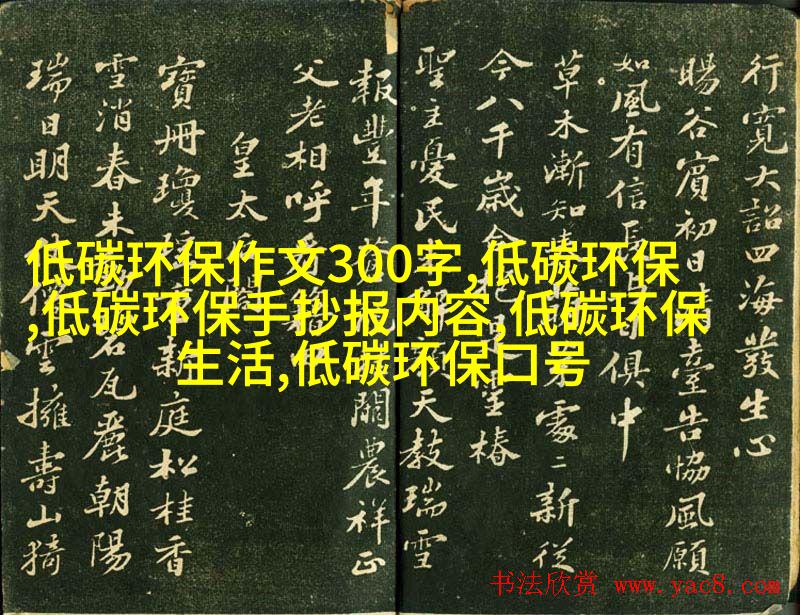 行寬大詔四海發生心
暘谷賓初日臺告協風願
如風有信俱中
草木漸知處二新從
今八千歲椿
聖主憂民天教瑞雪
報豐年關農祥正
父老相呼
皇太
寶冊瓊新庭松桂香
雪消春未瓦麗朝陽
瑞日明天雲擁壽山猗
低碳环保作文300字,低碳环保
,低碳环保手抄报内容,低碳环保
生活,低碳环保口号
书法欣赏 www.yac8.com